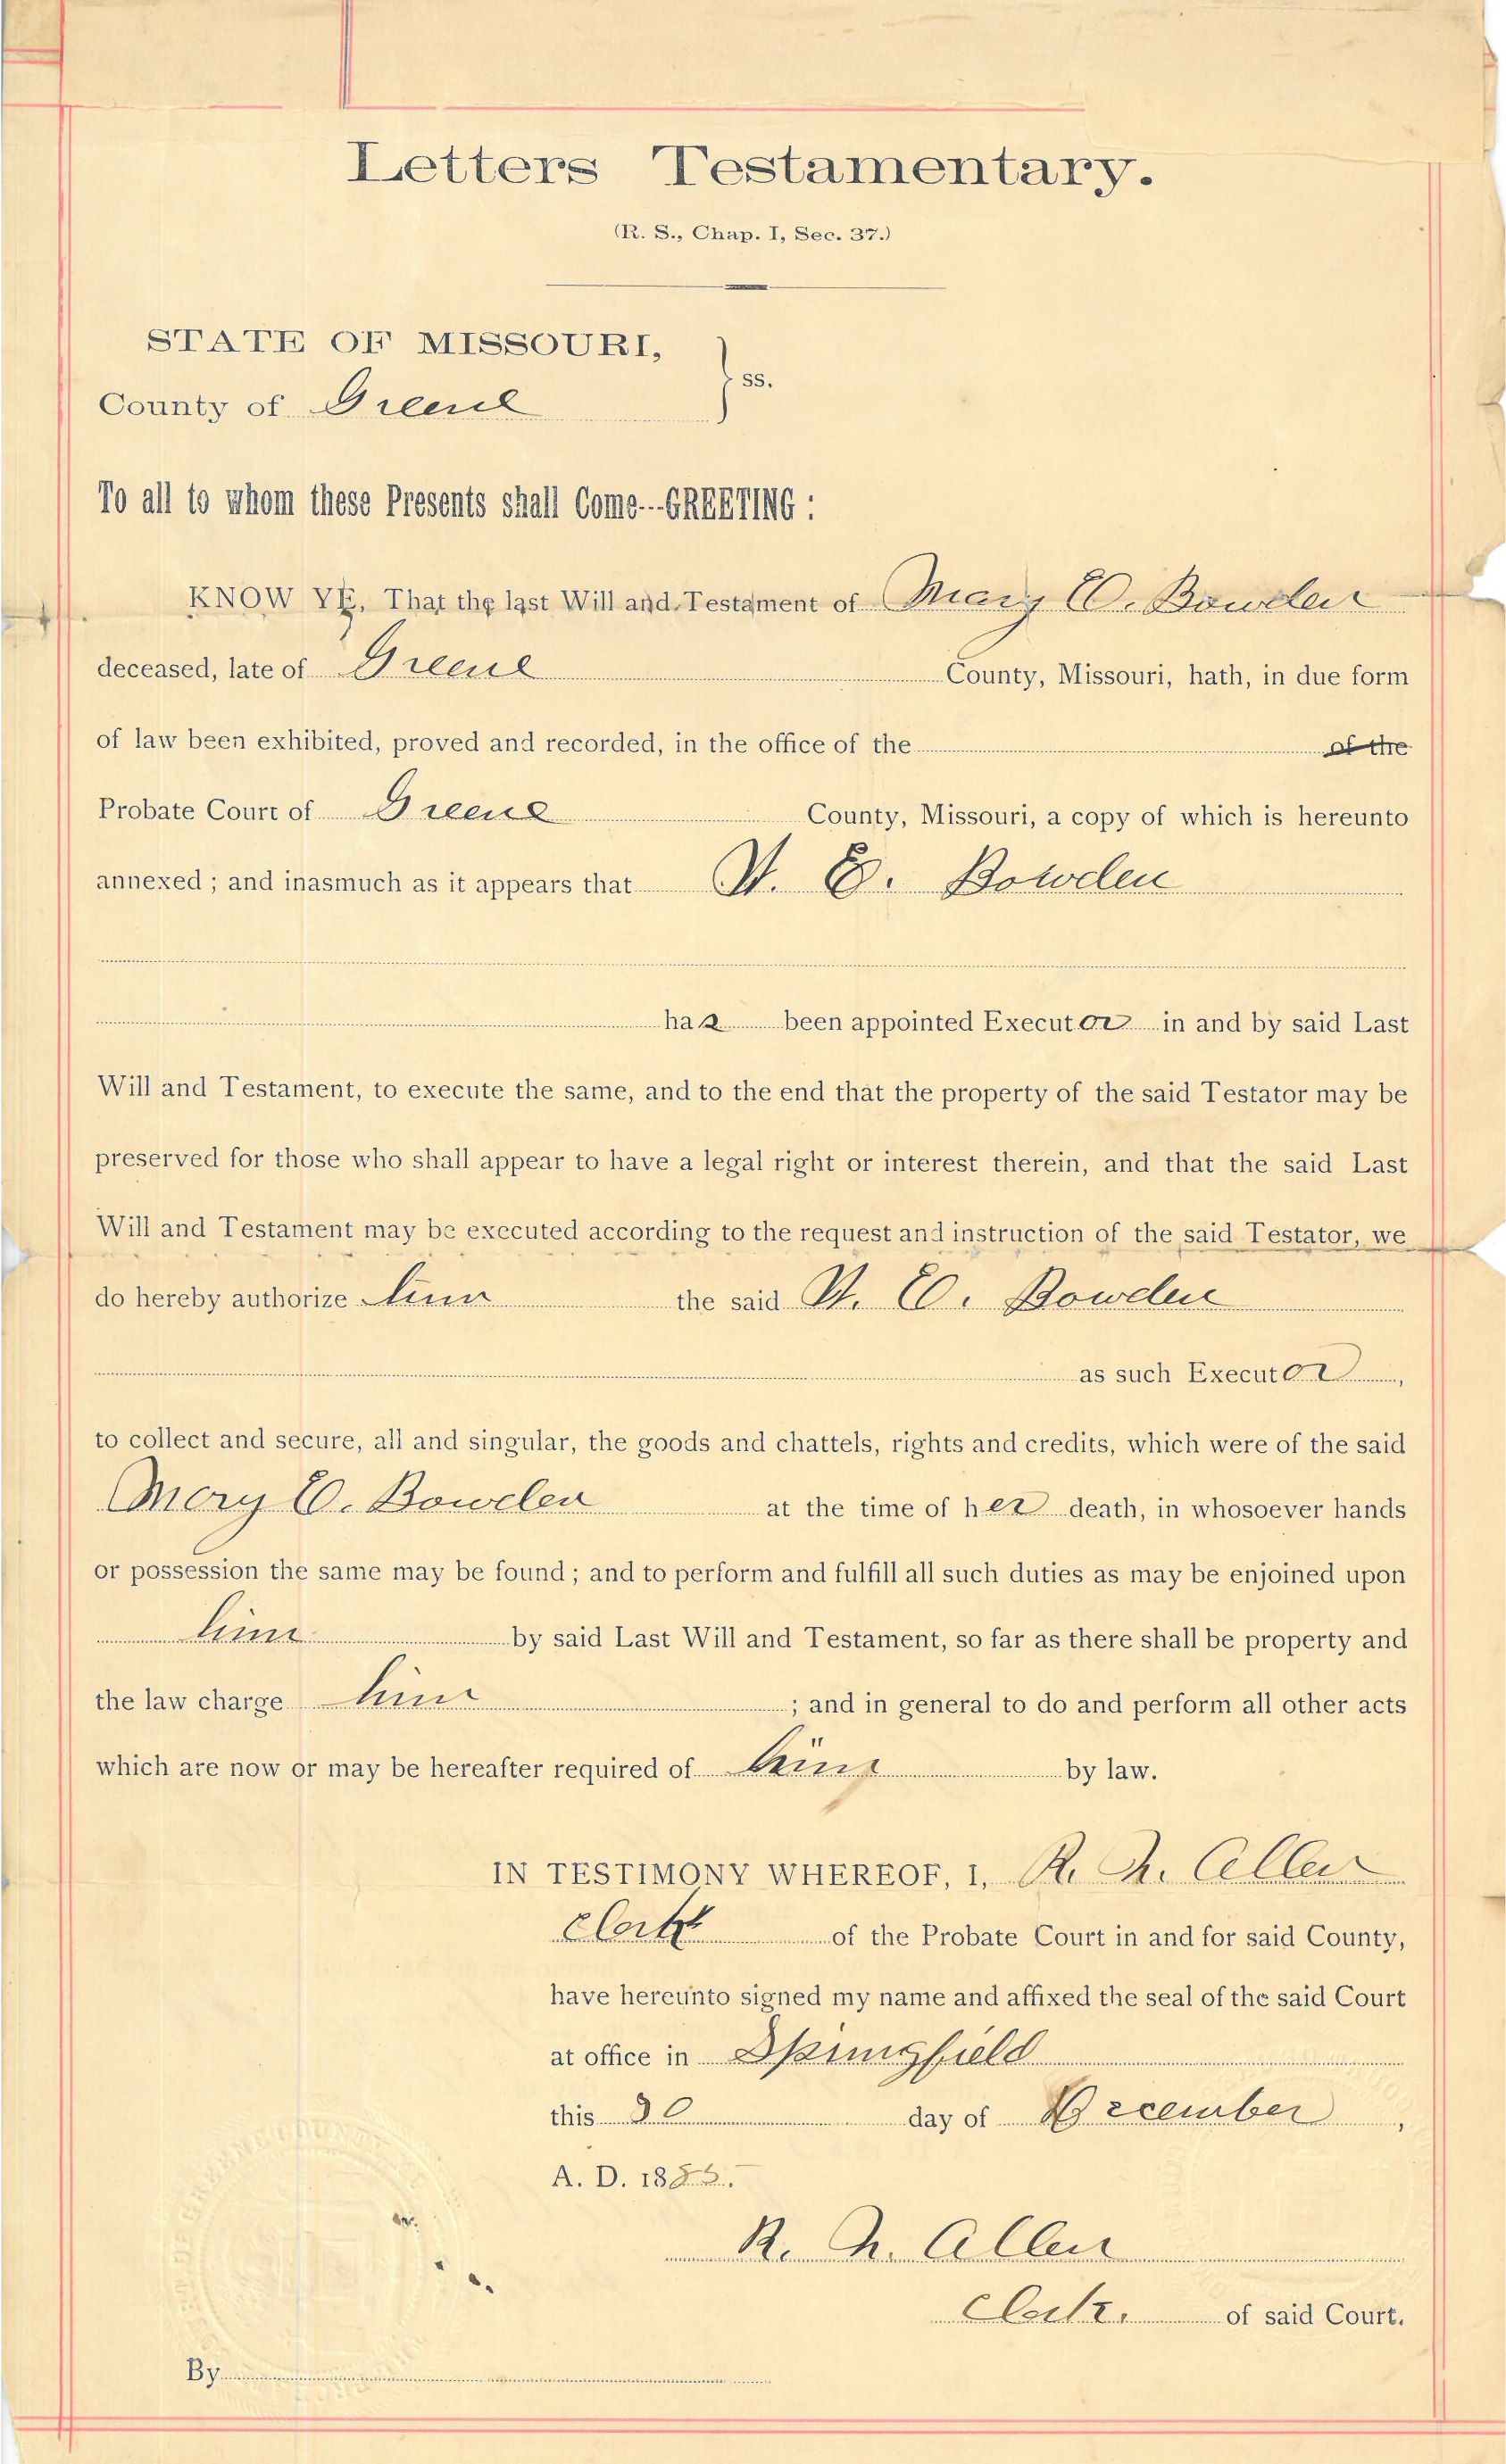 Letters Testamentary.
(R. S., Chap. I, Sec. 37.)
STATE OF MISSOURI,
County of Greene } ss.
To all to whom these Presents shall Come---GREETING :
KNOW YE, That the last Will and Testament of Mary E. Bowden
deceased, late of Greene County, Missouri, hath, in due form
of law been exhibited, proved and recorded, in the office of the of the
Probate Court of Greene County, Missouri, a copy of which is hereunto
annexed ; and inasmuch as it appears that E. Bowden
has been appointed Executor in and by said Last
Will and Testament, to execute the same, and to the end that the property of the said Testator may be
preserved for those who shall appear to have a legal right or interest therein, and that the said Last
Will and Testament may be executed according to the request and instruction of the said Testator, we
do hereby authorize him the said E. Bowden
as such Executor ,
to collect and secure, all and singular, the goods and chattels, rights and credits, which were of the said
Mary E. Bowden at the time of her death, in whosoever hands
or possession the same may be found ; and to perform and fulfill all such duties as may be enjoined upon
him by said Last Will and Testament, so far as there shall be property and
the law charge him ; and in general to do and perform all other acts
which are now or may be hereafter required of him by law.
IN TESTIMONY WHEREOF, I, R. N. Allen
Clerk of the Probate Court in and for said County,
have hereunto signed my name and affixed the seal of the said Court
at office in Springfield
this 30 day of December ,
A. D. 1885.
R. N. Allen
Clerk. of said Court.
By